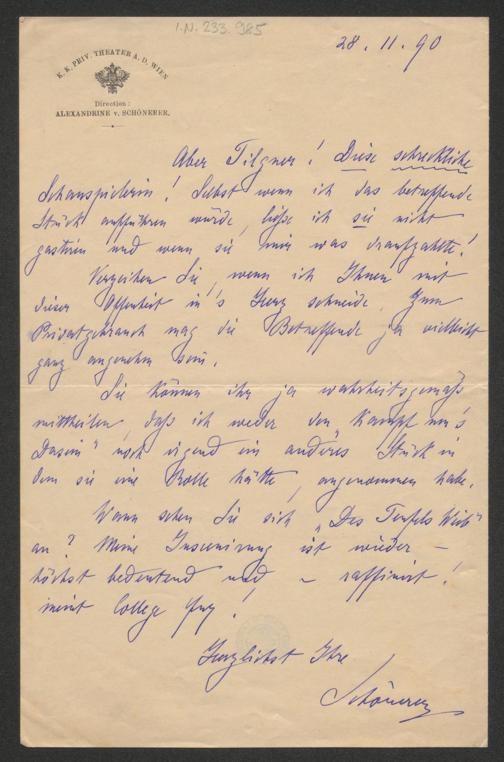 I.N. 233.985
28. 11. 90
K. K. PRIV. THEATER A. D. WIEN
Direction:
ALEXANDRINE v. SCHÖNERER.
Aber Tilgner! Diese schreckliche
Schauspielerin! Selbst wenn ich das betreffende
Stück aufführen würde, ließe ich sie nicht
gastiren und wenn sie mir was draufzahlte!
Verzeihen Sie, wenn ich Ihnen mit
dieser Offenheit in's Herz schneide. Zum
Privatgebrauch mag die Betreffende ja vielleicht
ganz angenehm sein.
Sie können ihr ja wahrheitsgemäß
mittheilen, daß ich weder den „Kampf um's
Dasein" noch irgend ein anderes Stück in
dem sie eine Rolle hätte, angenommen habe.
Wann sehen Sie sich „Des Teufels Weib"
an? Meine Inscenirung ist wieder –
höchst bedeutend und – raffinirt!
meint College
Herzlichst Ihre
Schönerer